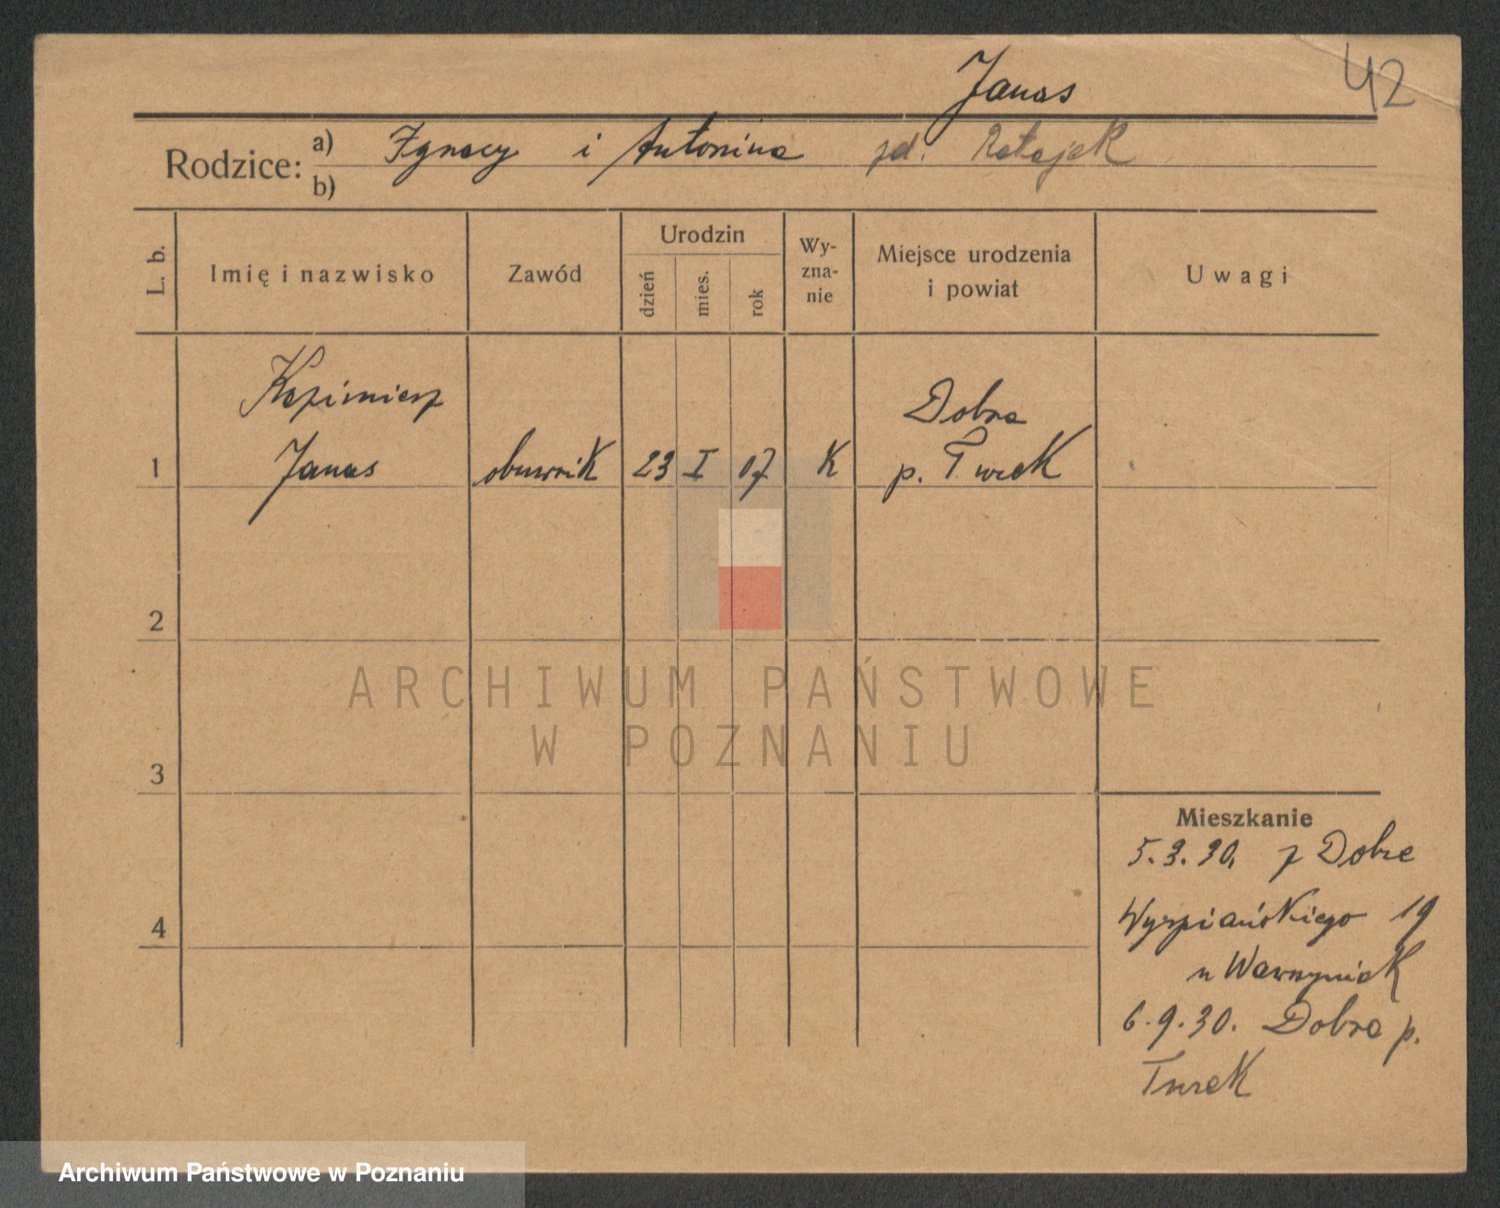 Janas
42
Rodzice: a) Ignacy i Antonina zd. Ratajek
b)
L. b.
Imię i nazwisko
Zawód
Urodzin
dzień
mies.
rok
Wy-
zna-
nie
Miejsce urodzenia
i powiat
Uwagi
Kazimierz
Dobra
1 Janas obuwnik 23 I 07 K p. Turek
2
3
4
Mieszkanie
5.3.30, z Dobre
Wyspiańskiego 19
u Wawrzyniak
6.9.30. Dobra p.
Turek
ARCHIWUM PAŃSTWOWE
W POZNANIU
Archiwum Państwowe w Poznaniu